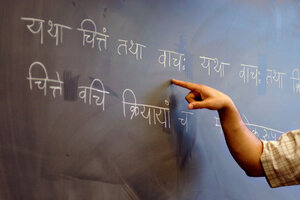 यथा चित्तं तथा वाचः यथा वाचः तथा
चित्ते वाचि क्रियायां च